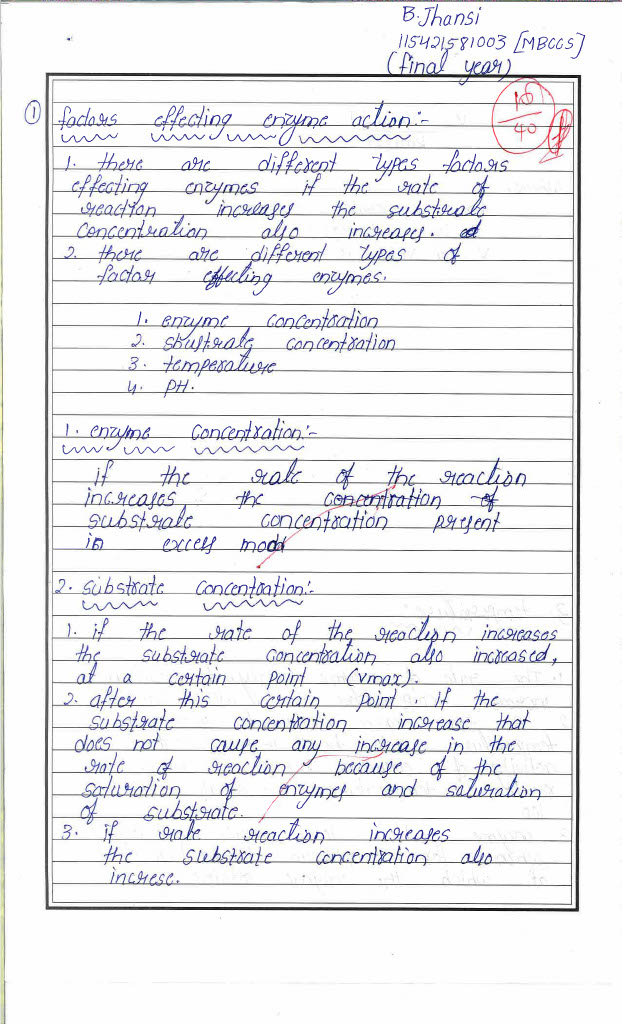 B. Jhansi
115421581003 [MBCCS]
(final year)
① factors effecting enzyme action:-
40
1. there are different types factors
effecting enzymes if the rate of
reaction increases the substrate
concentration also increases.
2. there are different types of
factor effecting enzymes.
1. enzyme concentration
2. sbustrate concentration
3. temperature
4. PH.
1. enzyme concentration:-
if the rate of the reaction
increases the concentration of
substrate concentration present
in excess
2. substrate concentration:-
1. if the rate of the reaction increases
the substrate concentration also increased,
at a certain point (vmax).
2. after this certain point. if the
substrate concentration increase that
does not cause any increase in the
rate of reaction because of the
saturation of enzymes and saturation
of substrate.
3. if rate reaction increases
the substrate concentration also
increse.